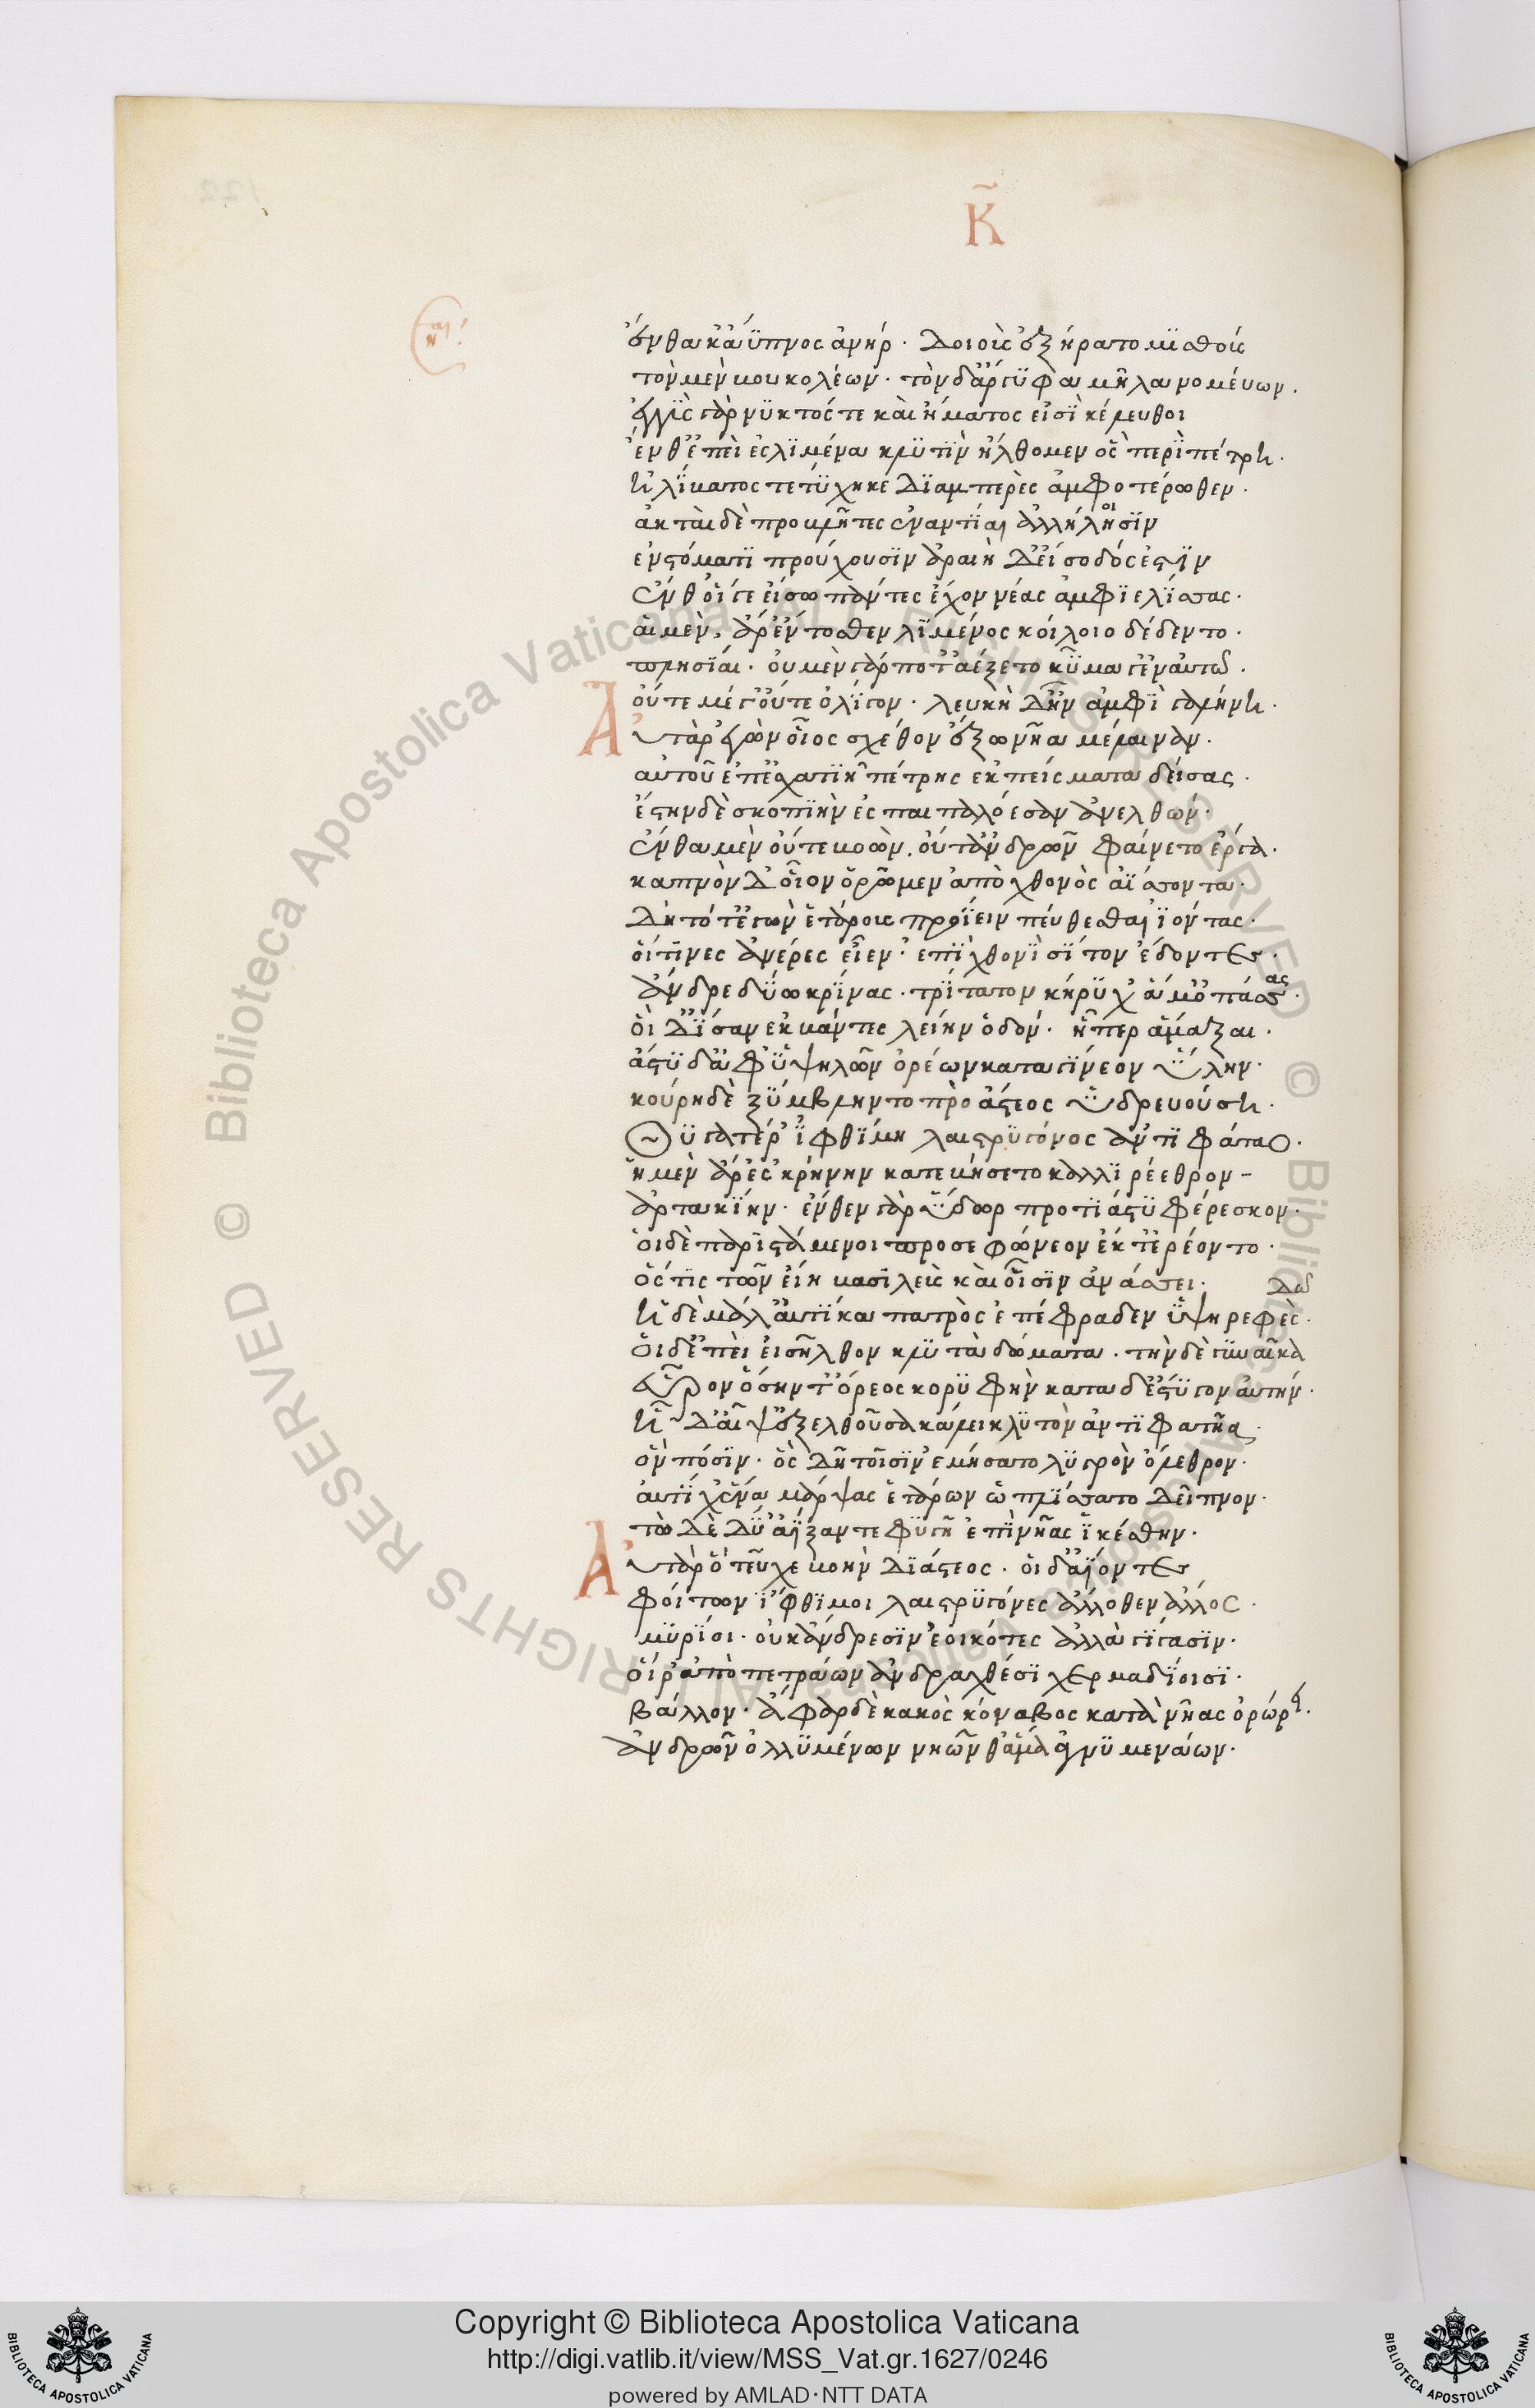 Κ̃
ἔνθα κ' ἄϋπνος ἀνὴρ· δοιοὺς ἐξήρατο μισθοὺς
τὸν μὲν βουκολέων· τὸν δ' ἄργϋφα μῆλα νομεύων.
ἐγγὺς γὰρ νυκτός τε καὶ ἤματος εἰσὶ κέλευθοι
ἔνθ' ἐπεὶ ἐς λιμένα κλυτὸν ἤλθομεν ὃν περὶ πέτρη.
ἠλίβατος τετύχηκε διαμπερὲς ἀμφοτέρωθεν.
ἀκταὶ δὲ προβλῆτες ἐναντίαι ἀλλήλῃσιν
οι
ἐν στόματι προύχουσιν ἀραιὴ δ' εἴσοδός ἐστιν
ἔνθ' οἵ γε εἴσω πάντες ἔχον νέας ἀμφιελίσσας.
αἱ μὲν ἄρ' ἔντοσθεν λιμένος κοίλοιο δέδεντο.
πλησίαι· οὐ μὲν γάρ ποτ' ἀέξετο κῦμά γ' ἐν αὐτῶ.
οὔτε μέγ' οὔτε ὀλίγον· λευκὴ δ' ἦν ἀμφὶ γαλήνη.
Αὐτὰρ ἐγὼν οἶος σχέθον ἔξω νῆα μέλαιναν.
αὐτοῦ ἐπ' ἐσχατιῆ πέτρης ἐκ πείσματα δείσας.
ἔστην δὲ σκοπιὴν ἐς παιπαλόεσαν ἀνελθών.
ἔνθα μὲν οὔτε βοῶν. οὔτ' ἀνδρῶν φαίνετο ἔργα.
καπνὸν δ' οἶον ὁρῶμεν ἀπὸ χθονὸς ἀΐσσοντα.
δὴ τότ' ἐγὼν ἑτάρους προΐειν πεύθεσθαι ἰόντας.
οἵτινες ἀνέρες εἶεν· ἐπὶ χθονὶ σῖτον ἔδοντες.
ἄνδρε δύω κρίνας· τρίτατον κήρυχ' ἅμ' ὀπάσας.
οἱ δ' ἴσαν ἐκβάντες λείην ὁδόν. ἧπερ ἅμαξαι.
ἄστυ δ' ἀφ' ὑψηλῶν ὀρέων καταγίνεον ὕλην.
κούρη δὲ ξύμβληντο πρὸ ἄστεος ὑδρευούση.
Θυγατέρ' ἰφθίμη λαιστρυγόνος ἀντιφάταο.
ἡ μὲν ἄρ' ἐς κρήνην κατεβήσετο καλλιρέεθρον-
ἀρτακίην· ἔνθεν γὰρ ὕδωρ προτὶ ἄστυ φέρεσκον.
οἱ δὲ παριστάμενοι προσεφώνεον ἐκ τ' ἐρέοντο.
ὅς τις τῶν εἴη βασιλεὺς καὶ οἷσιν ἀνάσσει.
ἡ δὲ μάλ' αὐτίκα πατρὸς ἐπέφραδεν ὑψηρεφὲς δῶ.
οἱ δ' ἐπεὶ εἰσῆλθον κλυτὰ δώματα. τὴν δὲ γυναῖκα
εὗρον ὅσην τ' ὄρεος κορυφὴν κατὰ δ' ἔστυγον αὐτήν.
ἡ δ' αἶψ' ἐξελθοῦσα κάλει κλυτὸν ἀντιφατῆα
ὃν πόσιν· ὃς δὴ τοῖσιν ἐμήσατο λυγρὸν ὄλεθρον.
αὐτίχ' ἕνα μάρψας ἑτάρων ὡπλίσσατο δεῖπνον.
τὼ δὲ δύ' ἀΐξαντε φυγῆ ἐπὶ νῆας ἱκέσθην.
Αὐτὰρ ὁ τεῦχε βοὴν δι' ἄστεος. οἱ δ' ἀΐοντες
φοίτων ἴφθιμοι λαιστρυγόνες ἄλλοθεν ἄλλος.
μυρίοι· οὐκ ἄνδρεσιν ἐοικότες ἀλλὰ γίγασιν.
οἵ ῥ' ἀπὸ πετράων ἀνδραχθέσι χερμαδίοισι.
βάλλον· ἄφαρ δὲ κακὸς κόναβος κατὰ νῆας ὀρώρει.
ἀνδρῶν ὀλλυμένων νηῶν θ' ἅμα ἀγνυμενάων.
Copyright © Biblioteca Apostolica Vaticana
http://digi.vatlib.it/view/MSS_Vat.gr.1627/0246
powered by AMLAD·NTT DATA
BIBLIOTECA APOSTOLICA VATICANA
BIBLIOTECA APOSTOLICA VATICANA
© Biblioteca Apostolica Vaticana ALL RIGHTS RESERVED
© Biblioteca Apostolica Vaticana ALL RIGHTS RESERVED